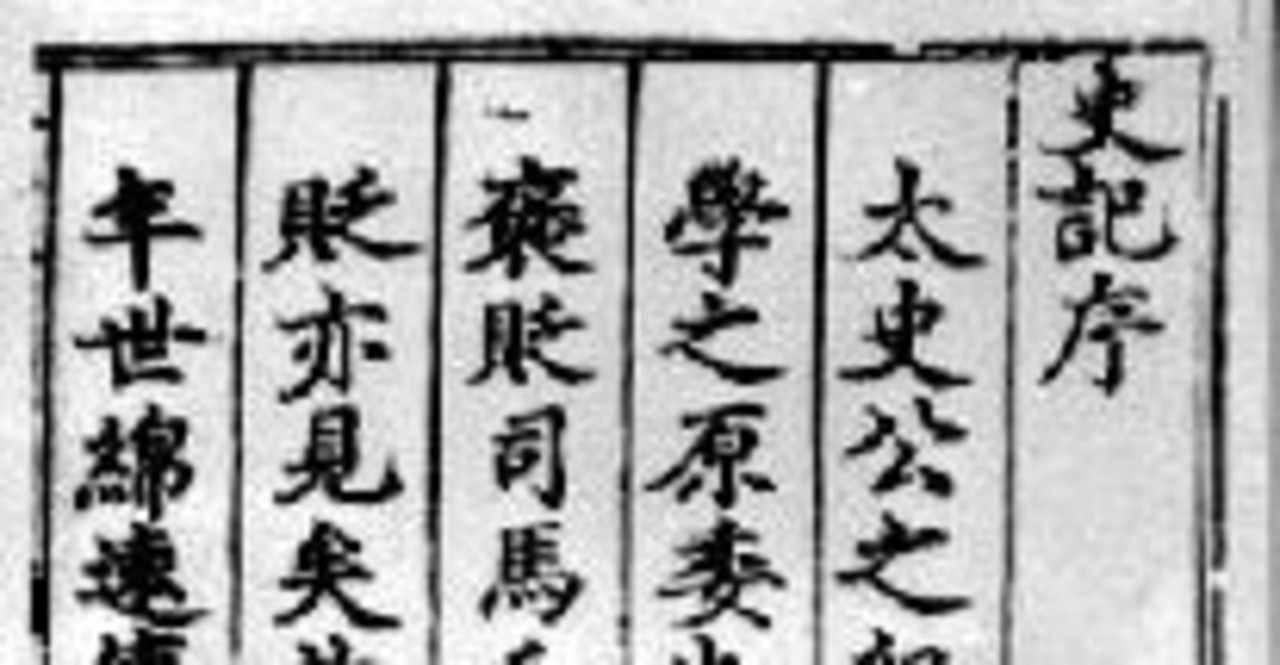 史記序
太史公之
學之原委
褒貶司馬
貶亦見矣
年世綿遠